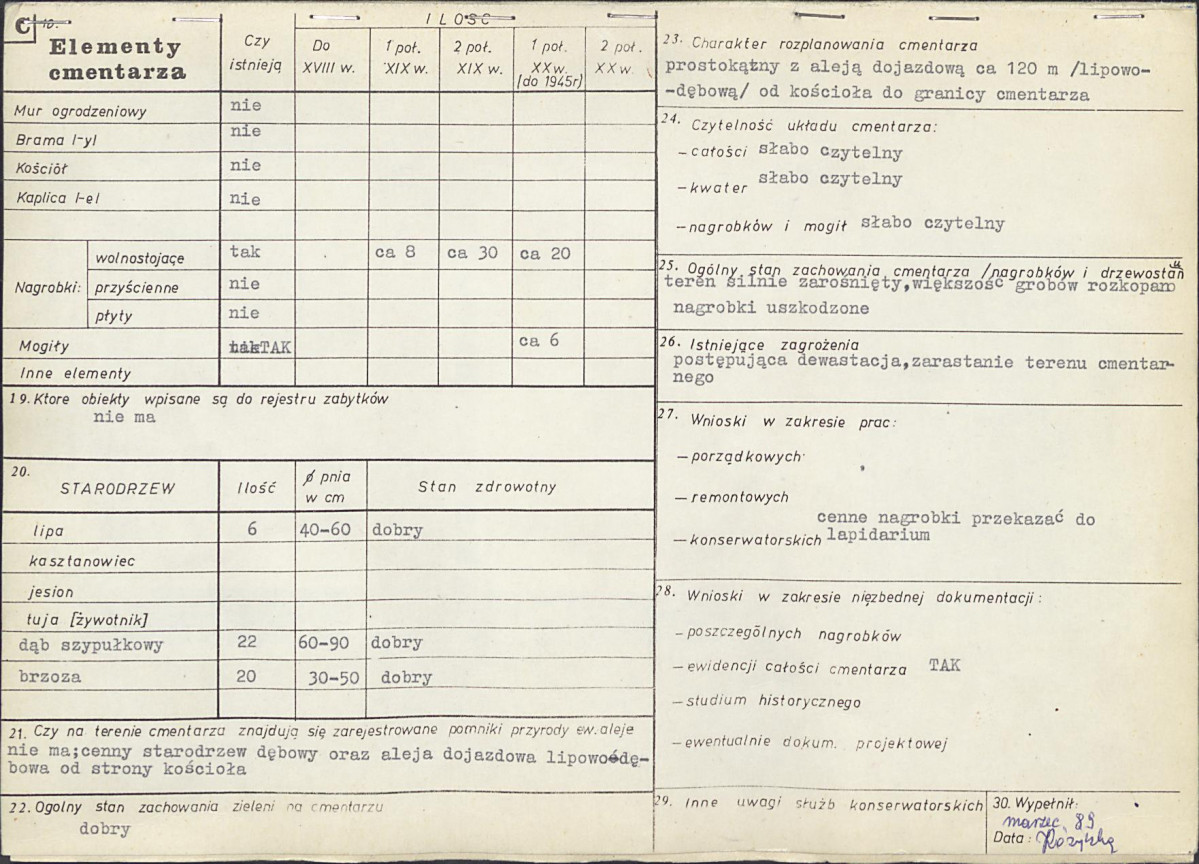 C
18.
Elementy
cmentarza
Czy
istnieją
ILOŚĆ
Do
XVIII w.
1 poł.
XIX w.
2 poł.
XIX w.
1 poł.
XX w.
[do 1945r]
2 poł.
XX w.
Mur ogrodzeniowy nie
Brama I-yl nie
Kościół nie
Kaplica I-el nie
Nagrobki:
wolnostojące tak ca 8 ca 30 ca 20
przyścienne nie
płyty nie
Mogiły takTAK ca 6
Inne elementy
19. Ktore obiekty wpisane są do rejestru zabytków
nie ma
20.
STARODRZEW Ilość ø pnia
w cm Stan zdrowotny
lipa 6 40-60 dobry
kasztanowiec
jesion
tuja [żywotnik]
dąb szypułkowy 22 60-90 dobry
brzoza 20 30-50 dobry
21. Czy na terenie cmentarza znajdują się zarejestrowane pomniki przyrody ew. aleje
nie ma;cenny starodrzew dębowy oraz aleja dojazdowa lipowo-dę-
bowa od strony kościoła
22. Ogolny stan zachowania zieleni na cmentarzu
dobry
23. Charakter rozplanowania cmentarza
prostokątny z aleją dojazdową ca 120 m /lipowo-
-dębową/ od kościoła do granicy cmentarza
24. Czytelność układu cmentarza:
-całości słabo czytelny
-kwater słabo czytelny
-nagrobków i mogił słabo czytelny
25. Ogólny stan zachowania cmentarza /nagrobków i drzewostan
teren silnie zarośnięty,większość grobów rozkopano
nagrobki uszkodzone
26. Istniejące zagrożenia
postępująca dewastacja,zarastanie terenu cmentar-
nego
27. Wnioski w zakresie prac:
-porządkowych
-remontowych
cenne nagrobki przekazać do
-konserwatorskich lapidarium
28. Wnioski w zakresie niezbednej dokumentacji:
-poszczególnych nagrobków
-ewidencji całości cmentarza TAK
-studium historycznego
-ewentualnie dokum. projektowej
29. Inne uwagi służb konserwatorskich
30. Wypełnił:
marzec, 89
Data: Różyńską